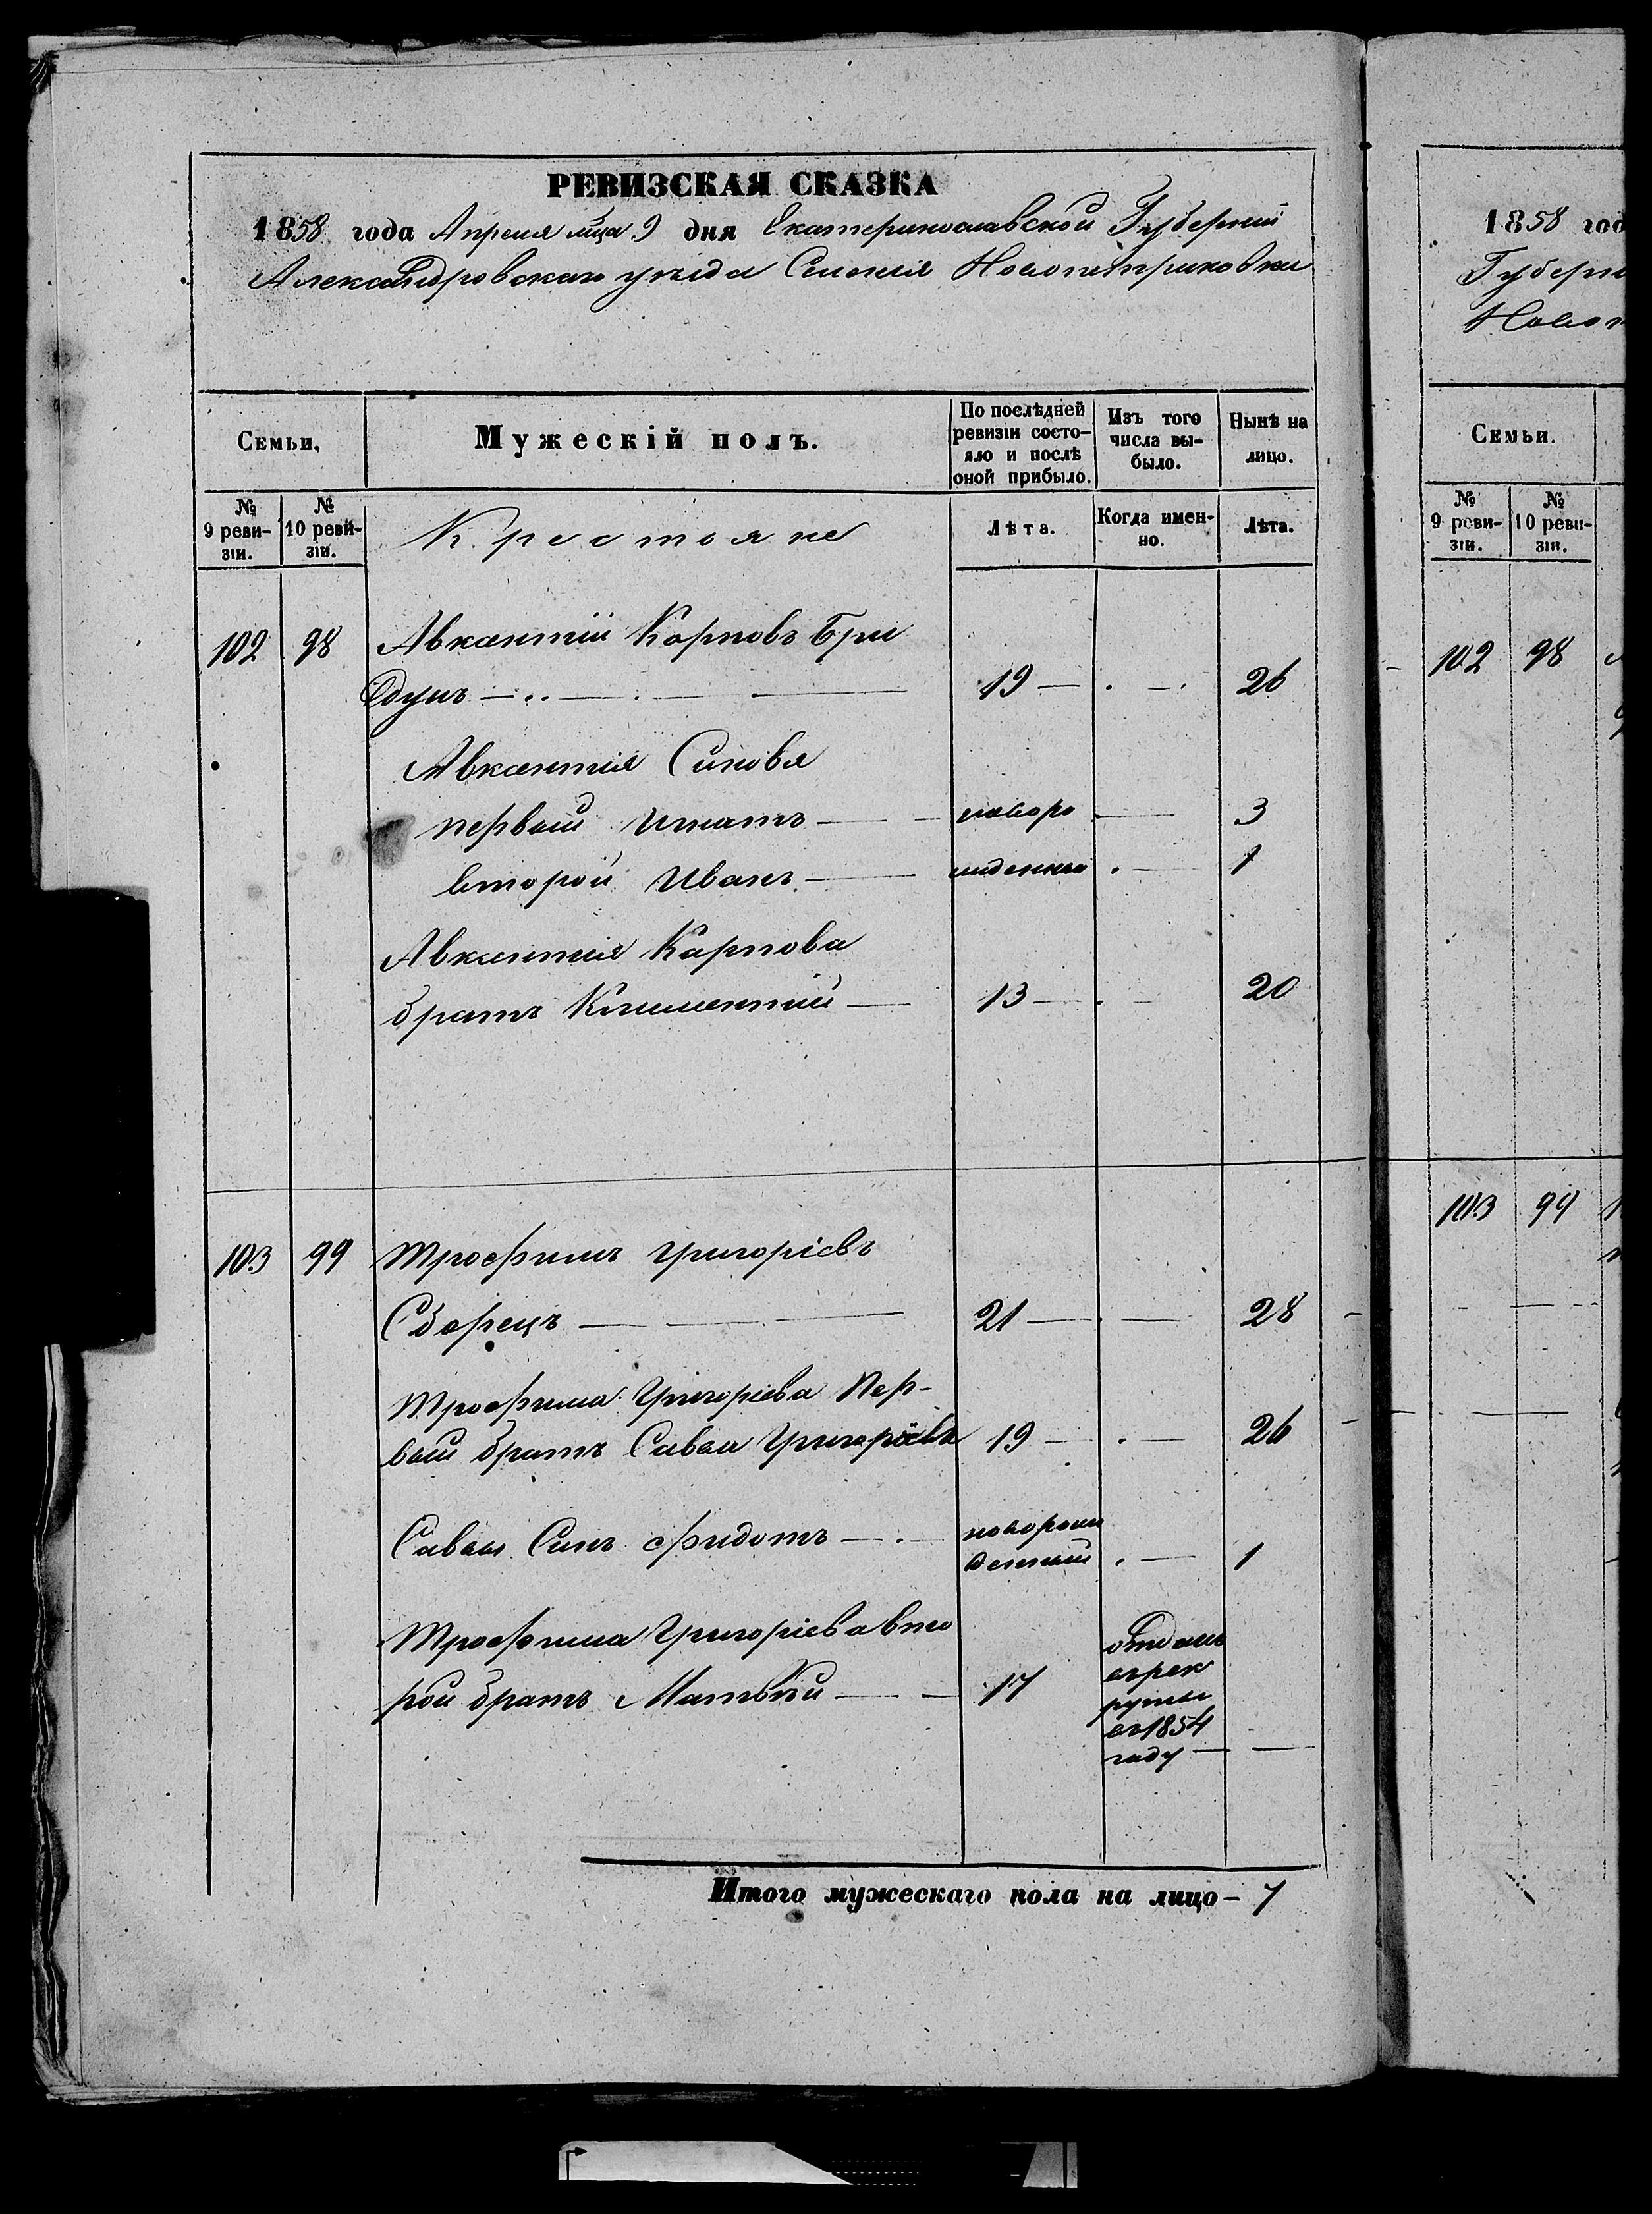 РЕВИЗСКАЯ СКАЗКА
1858 года Апреля мца 9 дня Екатеринославской Губерніи
Александровскаго уезда Селенія Новопетриковки
Семьи,
Мужескій полъ.
По послѣдней ревизіи состояло и послѣ оной прибыло.
Изъ того числа выбыло.
Нынѣ на лицо.
№ 9 ревизіи.
№ 10 ревизіи.
Крестяне
Лѣта.
Когда именно.
Лѣта.
102 98 Авксентій Карповъ Бри
дунъ 19 — . — 26
Авксентія Синовя
первый Игнатъ — новоро — 3
второй Иванъ — жденные . — 1
Авксентія Карпова
братъ Климентий — 13 — . — 20
103 99 Трофимъ Григоріевъ
Сборецъ — 21 — . — 28
Трофима Григоріева Пер-
вый братъ Савва Григоріевъ 19 — . — 26
Саввы Синъ Фидотъ — . — новорож
денный . — 1
Трофима Григоріева вто
рой братъ Матвѣй — 17
отданъ
въ рек
руты
въ 1854
году — —
Итого мужескаго пола на лицо — 7
1858 год
Губерн
Новоп
Семьи.
№ 9 ревизіи.
№ 10 ревизіи.
102 98
103 99